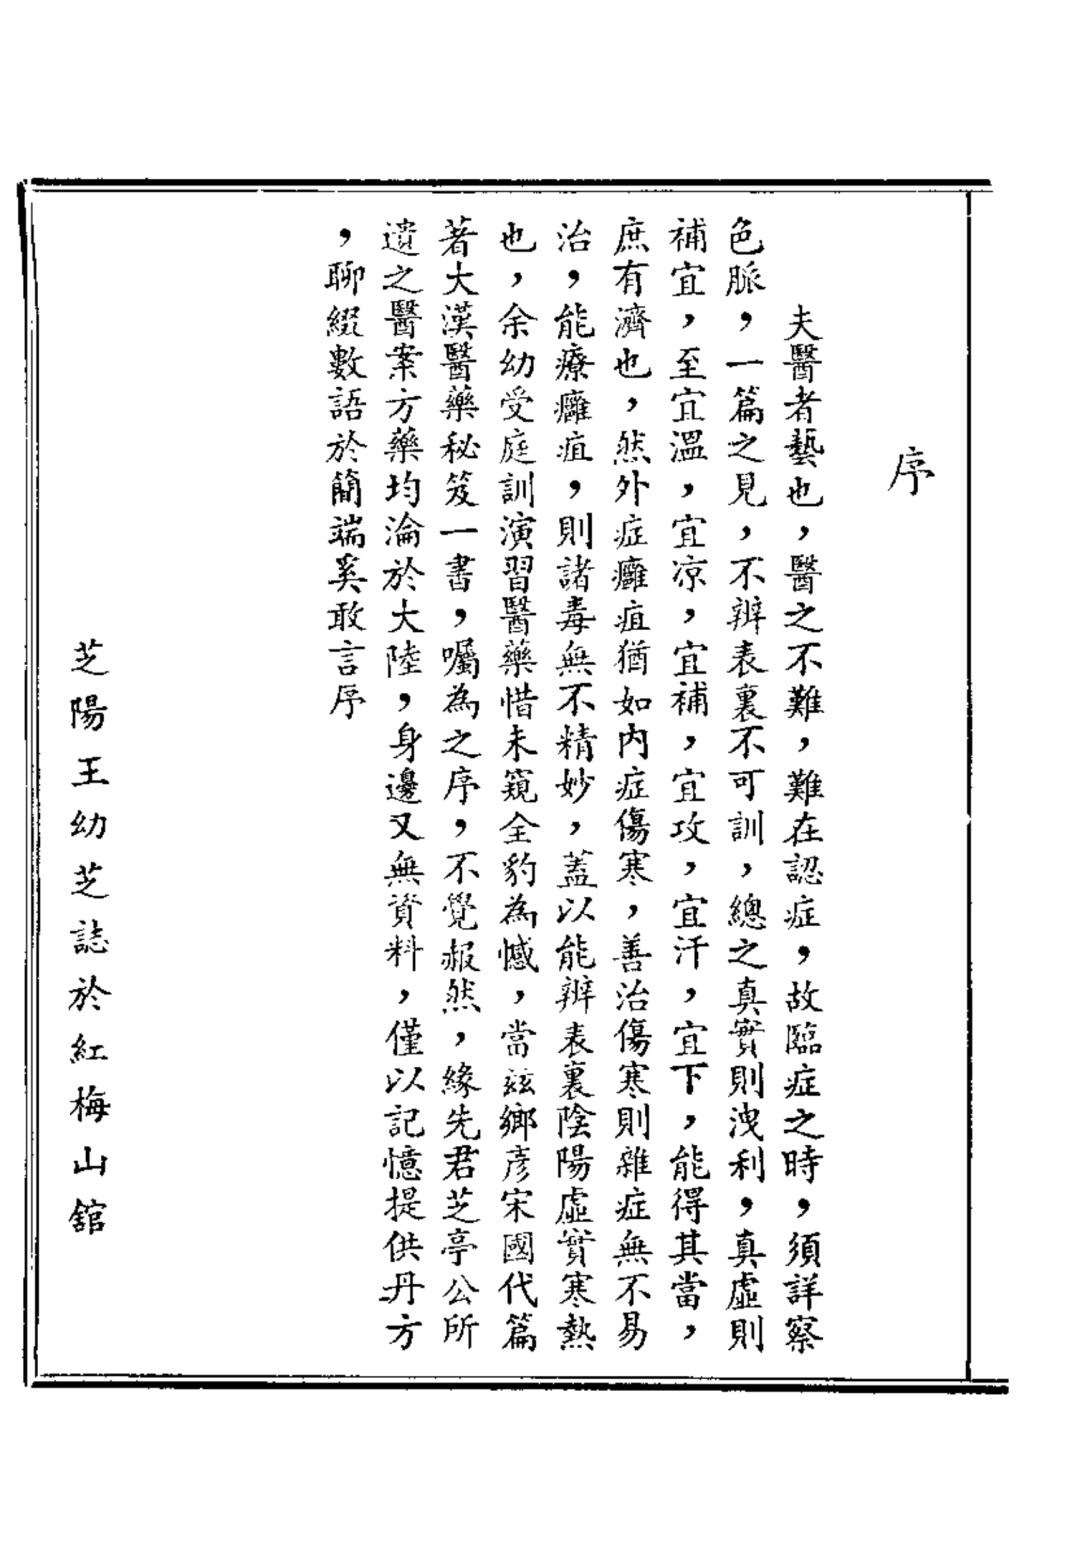 序
夫醫者藝也，醫之不難，難在認症，故臨症之時，須詳察
色脈，一篇之見，不辨表裏不可訓，總之真實則洩利，真虛則
補宜，至宜溫，宜凉，宜補，宜攻，宜汗，宜下，能得其當，
庶有濟也，然外症癰疽猶如內症傷寒，善治傷寒則雜症無不易
治，能療癰疽，則諸毒無不精妙，蓋以能辨表裏陰陽虛實寒熱
也，余幼受庭訓演習醫藥惜未窺全豹為憾，當茲鄉彥宋國代篇
著大漢醫藥秘笈一書，囑為之序，不覺赧然，緣先君芝亭公所
遺之醫案方藥均淪於大陸，身邊又無資料，僅以記憶提供丹方
，聊綴數語於簡端奚敢言序
芝陽王幼芝誌於紅梅山舘